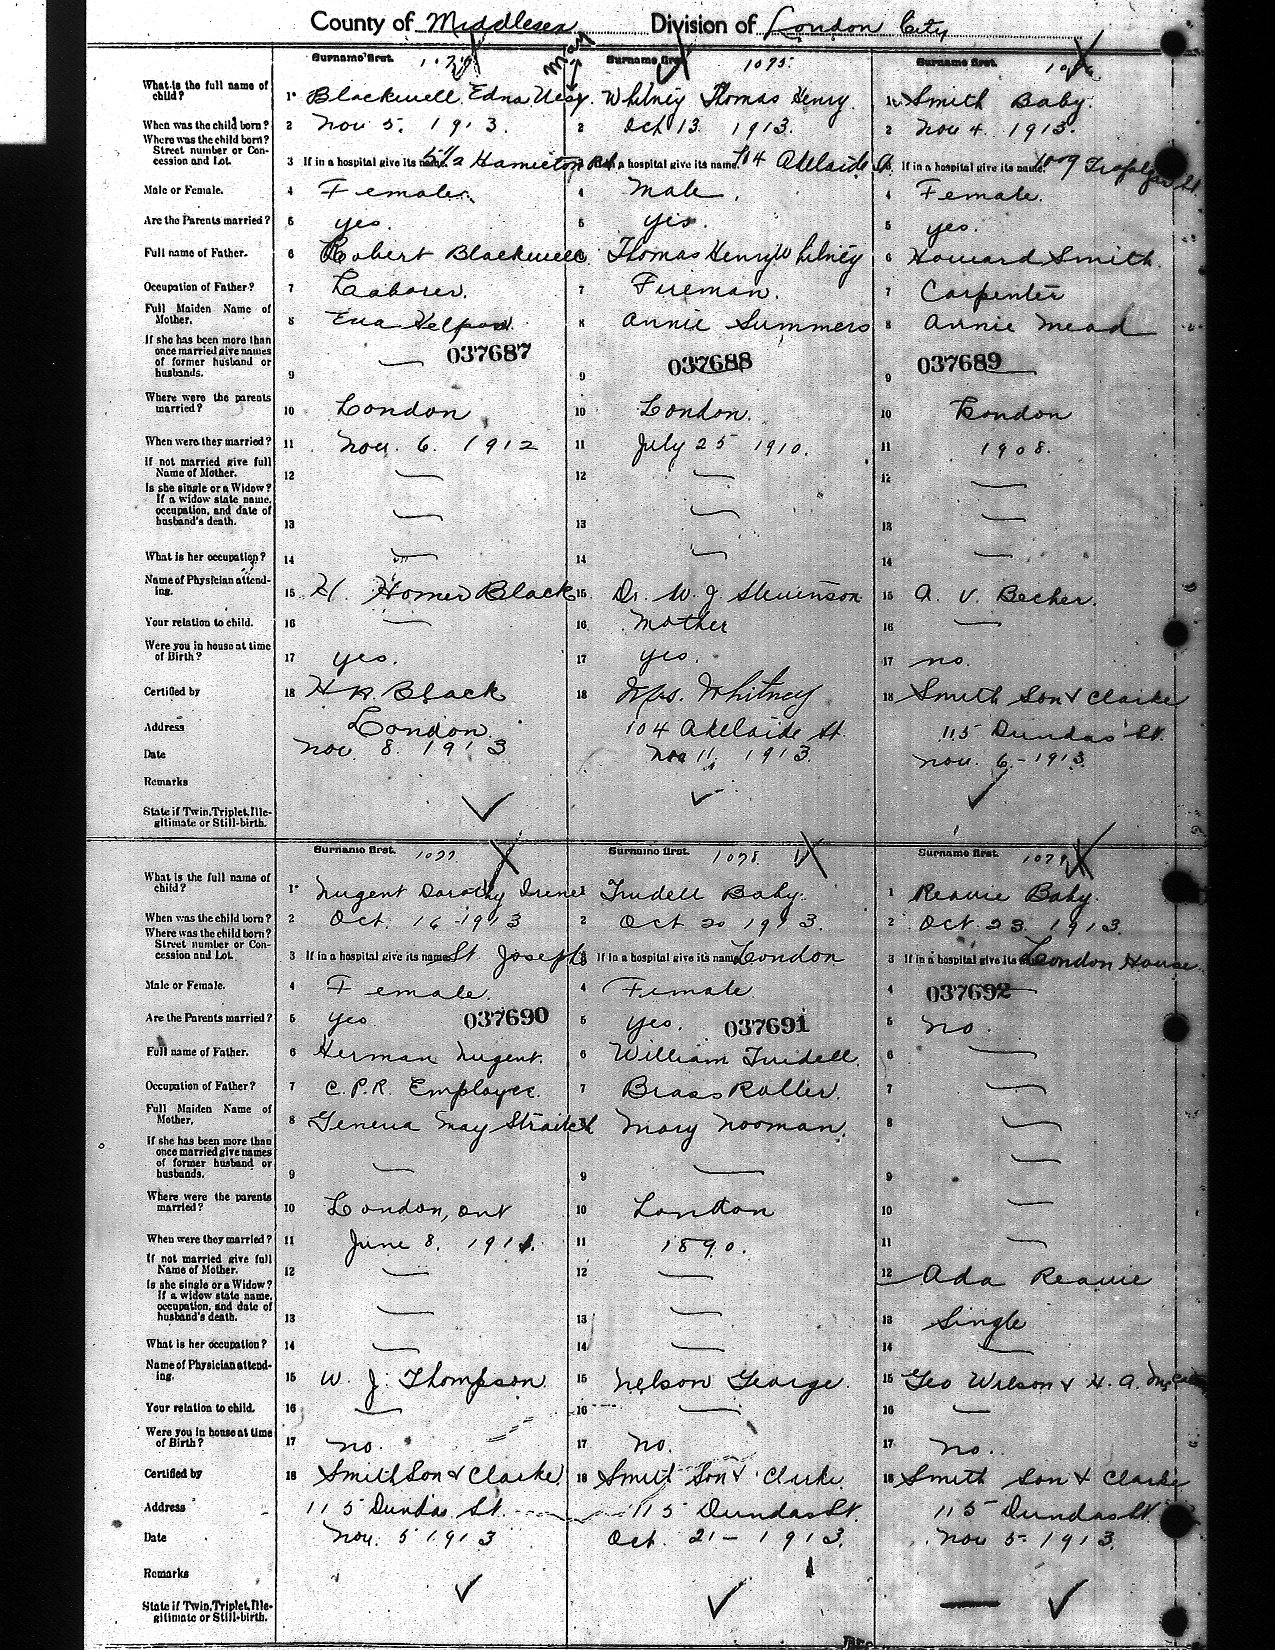 County of Middlesex Division of London City
Surname first. Surname first. 1075. Surname first.
What is the full name of child? 1 Blackwell Edna May. Whitney Thomas Henry. 1 Smith Baby.
When was the child born? 2 Nov 5. 1913. 2 Oct 13. 1913. 2 Nov 4. 1913.
Where was the child born?
Street number or Con-
cession and Lot. 3 If in a hospital give its name. Hamilton Rd. If in a hospital give its name. 104 Adelaide St. If in a hospital give its name. Trafalgar St.
Male or Female. 4 Female. 4 Male. 4 Female.
Are the Parents married? 5 yes. 5 yes. 5 yes.
Full name of Father. 6 Robert Blackwell Thomas Henry Whitney 6 Howard Smith.
Occupation of Father? 7 Laborer. 7 Fireman. 7 Carpenter
Full Maiden Name of
Mother. 8 Eva 8 Annie Summers 8 Annie Mead
If she has been more than
once married give names
of former husband or
husbands. 9 — 037687 9 037688 9 037689 —
Where were the parents
married? 10 London 10 London. 10 London
When were they married? 11 Nov. 6. 1912 11 July 25 1910. 11 1908.
If not married give full
Name of Mother. 12 — 12 — 12 —
Is she single or a Widow?
If a widow state name,
occupation, and date of
husband's death. 13 — 13 — 13 —
What is her occupation? 14 — 14 — 14 —
Name of Physician attend-
ing. 15 H. Homer Black 15 Dr. W. J. Stevenson 15 A. V. Becher.
Your relation to child. 16 — 16 Mother 16 —
Were you in house at time
of Birth? 17 yes. 17 yes. 17 no.
Certified by 18 H. H. Black 18 Mrs. Whitney 18 Smith Son & Clarke
Address London. 104 Adelaide St. 115 Dundas St.
Date Nov 8. 1913 Nov 11. 1913. Nov. 6 - 1913.
Remarks
State if Twin, Triplet, Ille-
gitimate or Still-birth.
Surname first. 1077 Surname first. 1078 Surname first. 1079
What is the full name of
child? 1 Nugent Dorothy Irene Trudell Baby. 1 Reavie Baby.
When was the child born? 2 Oct. 16 - 1913 2 Oct 20 1913. 2 Oct. 23. 1913.
Where was the child born?
Street number or Con-
cession and Lot. 3 If in a hospital give its name St. Josephs 3 If in a hospital give its name London 3 If in a hospital give its London House.
Male or Female. 4 Female. 4 Female 4 037692 —
Are the Parents married? 5 yes 037690 5 yes. 037691 5 no.
Full name of Father. 6 Herman Nugent. 6 William Trudell. 6 —
Occupation of Father? 7 C.P.R. Employee. 7 Brass Roller. 7 —
Full Maiden Name of
Mother. 8 Geneva May Mary Nooman. 8 —
If she has been more than
once married give names
of former husband or
husbands. 9 — 9 — 9 —
Where were the parents
married? 10 London, Ont 10 London 10 —
When were they married? 11 June 8. 1911. 11 1890. 11 —
If not married give full
Name of Mother. 12 — 12 — 12 Ada Reavie
Is she single or a Widow?
If a widow state name,
occupation, and date of
husband's death. 13 — 13 — 13 Single
What is her occupation? 14 — 14 — 14 —
Name of Physician attend-
ing. 15 W. J. Thompson 15 Nelson George. 15 Geo Wilson & H. A.
Your relation to child. 16 — 16 — 16 —
Were you in house at time
of Birth? 17 no. 17 no. 17 no.
Certified by 18 Smith Son & Clarke 18 Smith Son & Clarke. 18 Smith Son & Clarke
Address 115 Dundas St. 115 Dundas St. 115 Dundas St.
Date Nov. 5 1913 Oct. 21 - 1913. Nov 5 - 1913.
Remarks
State if Twin, Triplet, Ille-
gitimate or Still-birth.